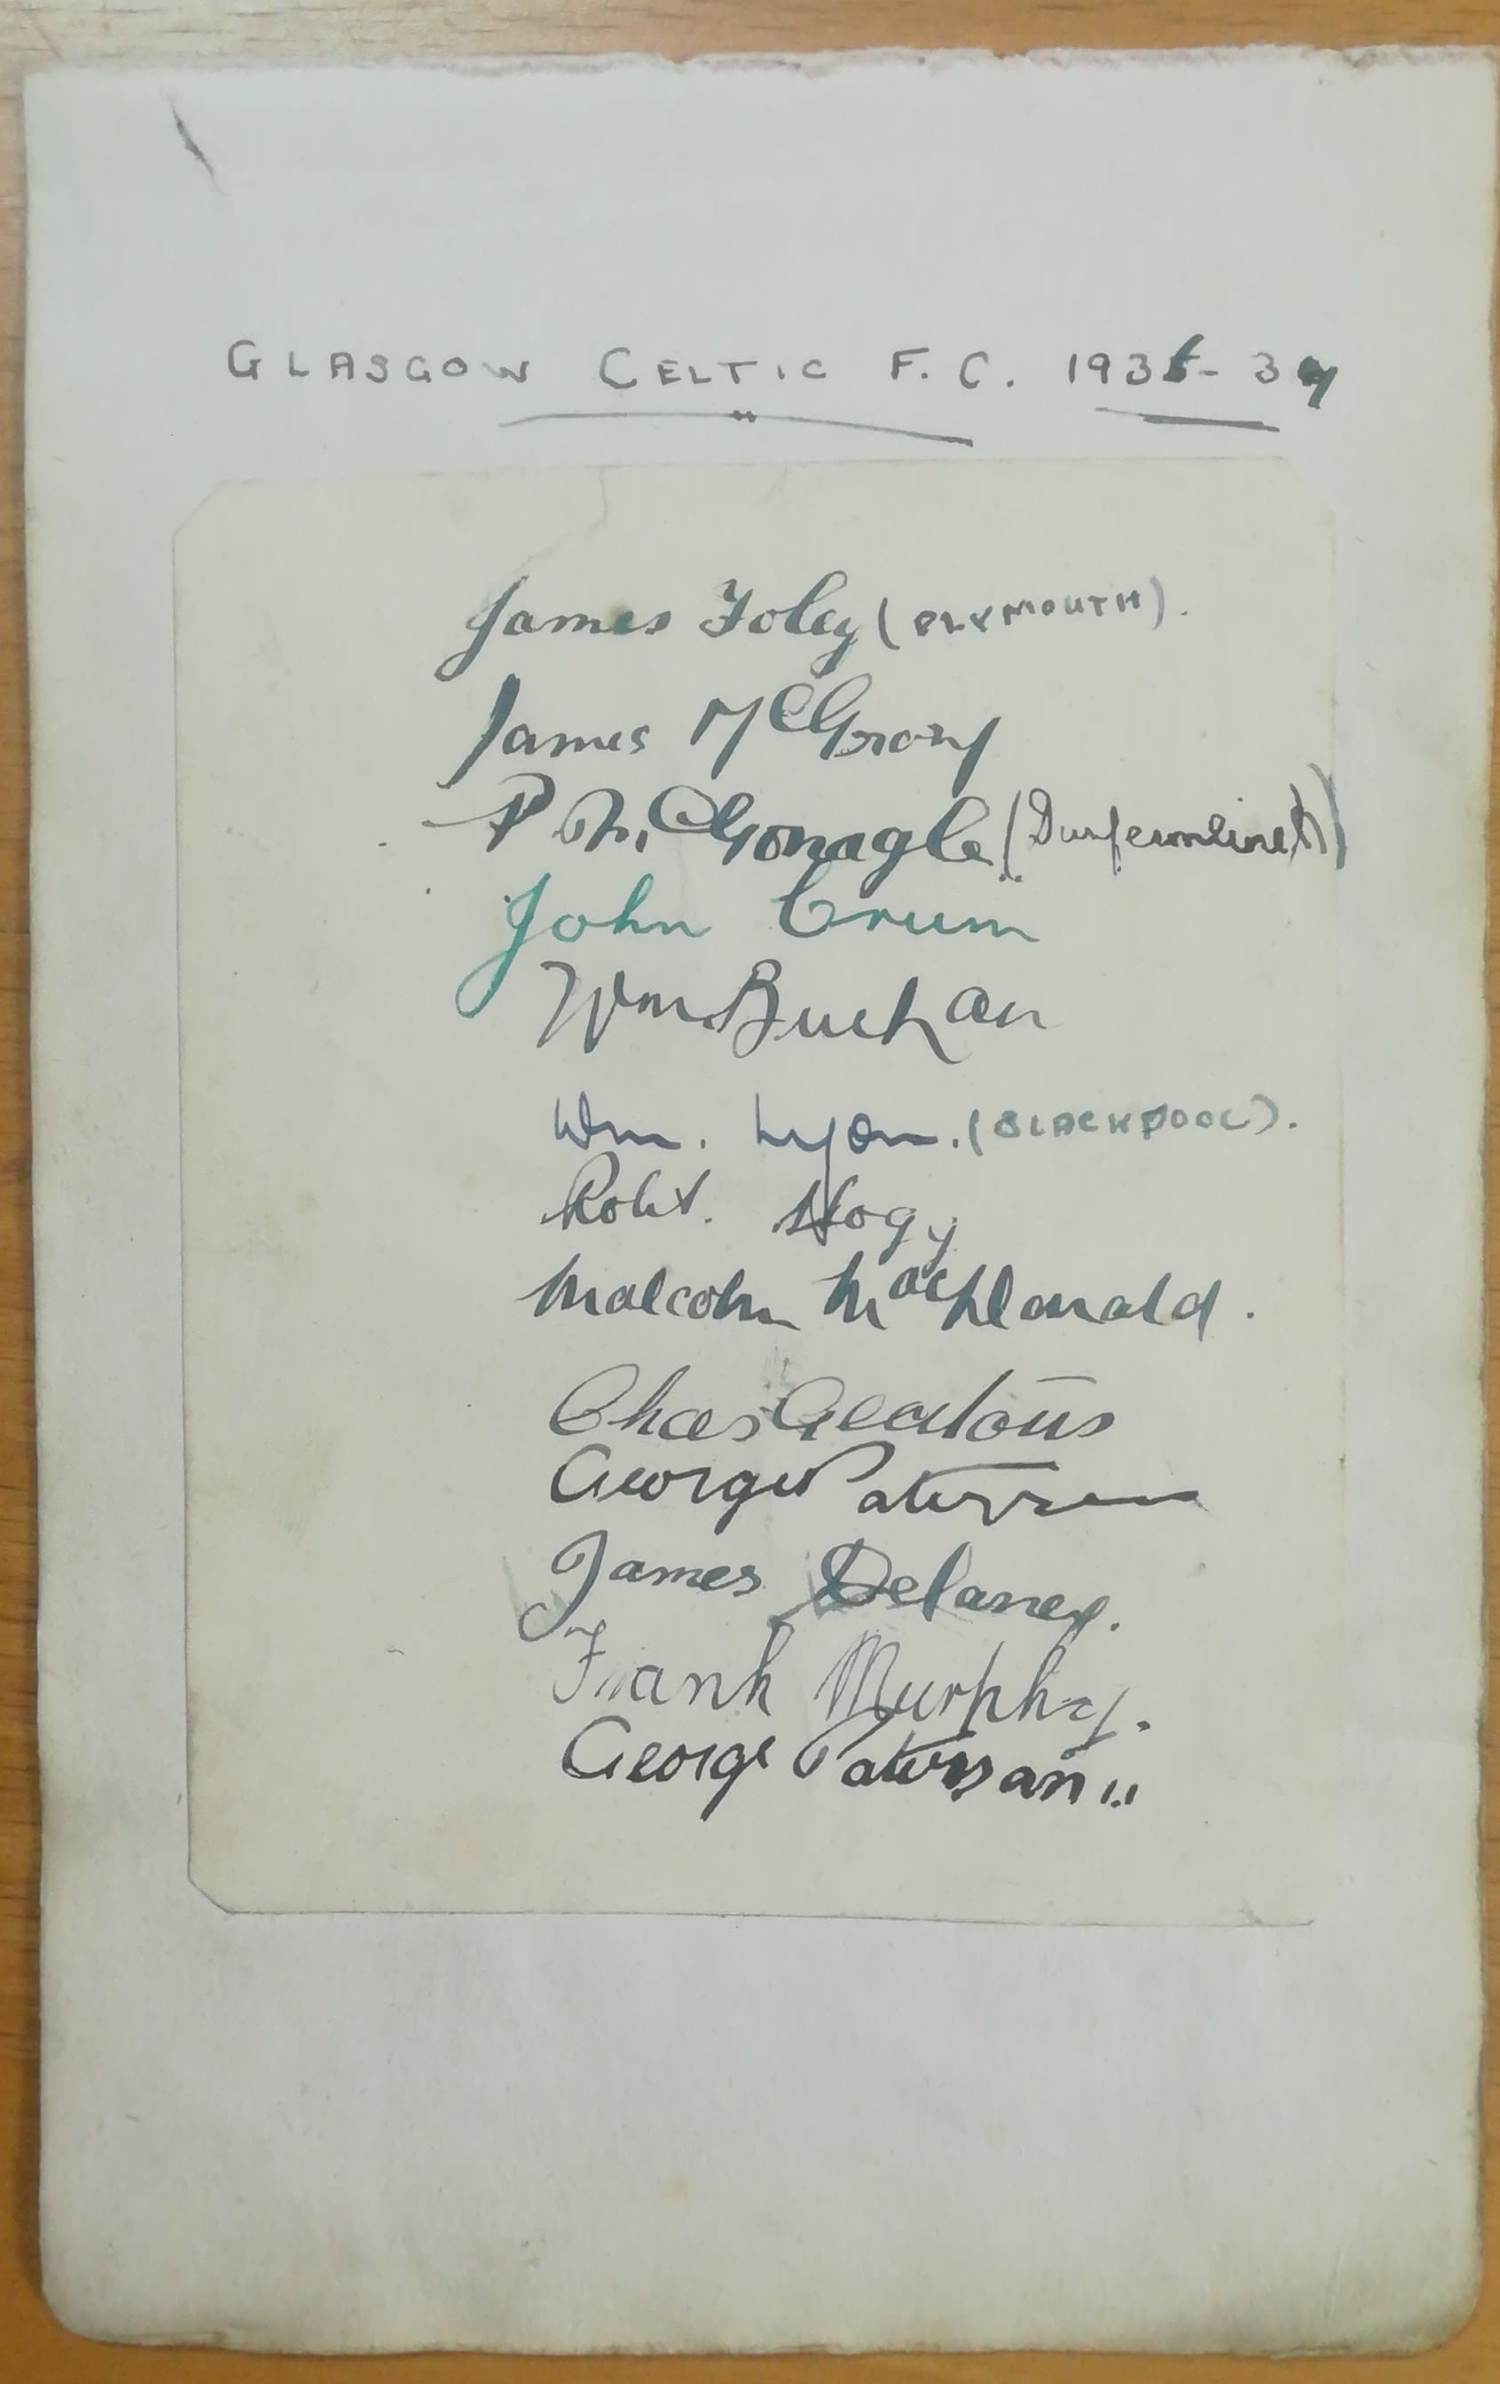 GLASGOW CELTIC F.C. 1936-37
James Foley (PLYMOUTH).
James McGrory
P McGonagle (Dunfermline)
John Crum
Wm Buchan
Wm. Lyon. (BLACKPOOL).
Robt. Hogg
Malcolm MacDonald.
Chas Geatons
George Paterson
James Delaney.
Frank Murphy.
George Paterson